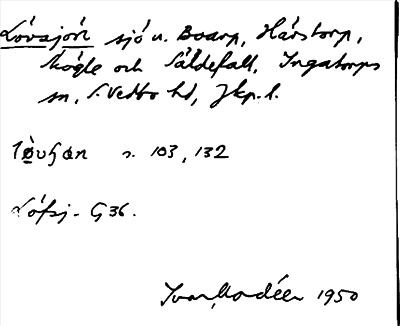 Lövsjön sjö u. Boarp, Hårstorp,
Skögle och Säldefall, Ingatorps
sn, S. Vedbo hd, Jkp. l.
s. 103, 132
Löfsj- G 36.
Ivar Modéer 1950